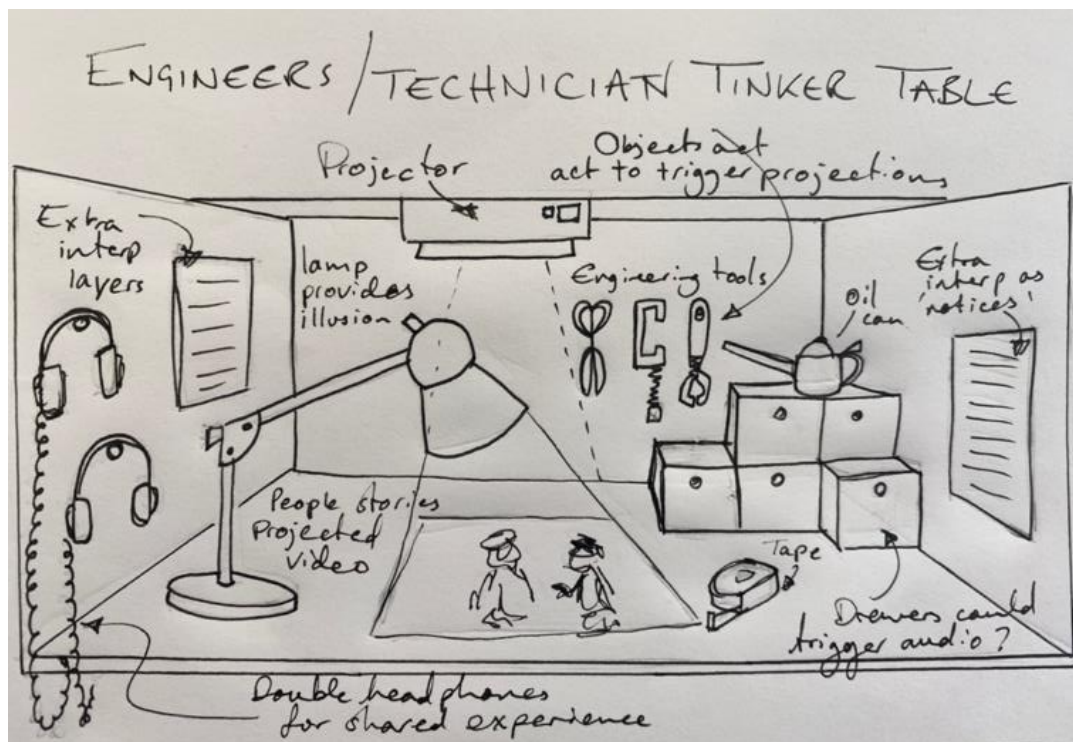 ENGINEERS/TECHNICIAN TINKER TABLE
Projector
Objects act
act to trigger projections
Extra
interp
layers
lamp
provides
illusion
Engineering tools
Oil
can
Extra
interp as
notices
People stories
Projected
video
Tape
Drewers could
trigger audio?
Double headphones
for shared experience